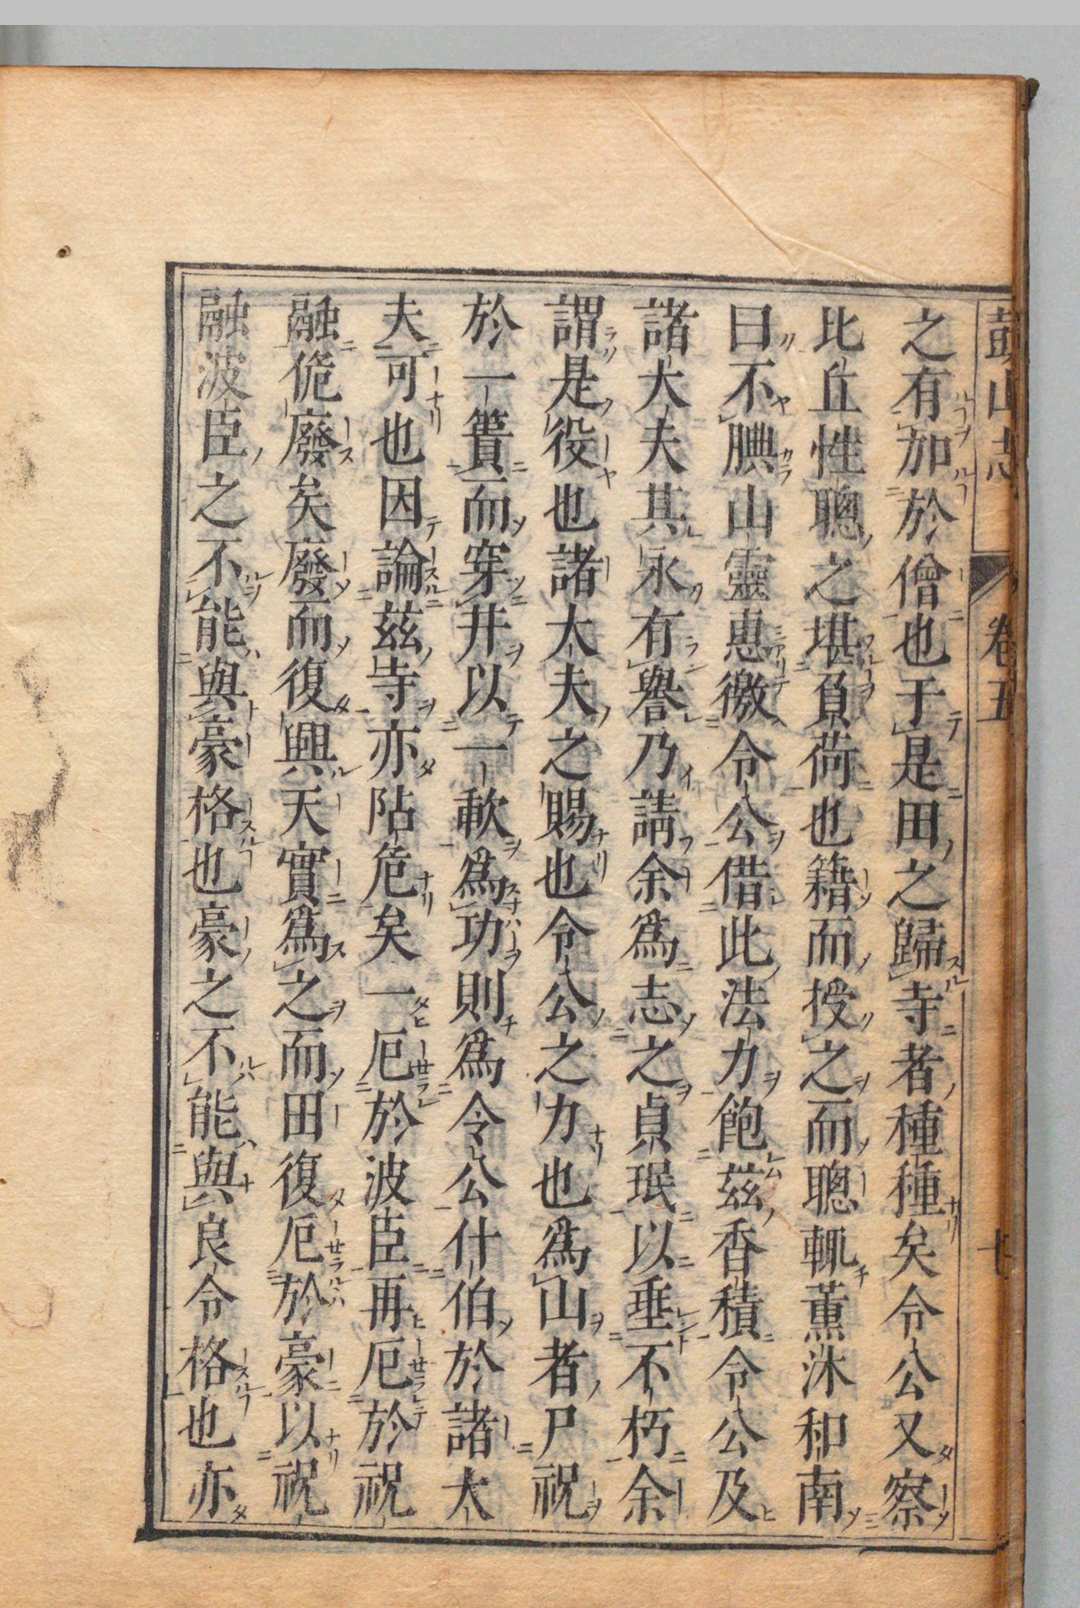 鼓山志 卷五
之有加於僧也于是田之歸寺者種種矣令公又察
比丘性聰之堪負荷也籍而授之而聰輒薰沐和南
曰不腆山靈惠徼令公借此法力飽茲香積令公及
諸大夫其永有譽乃請余為志之貞珉以垂不朽余
謂是役也諸大夫之賜也令公之力也為山者尸祝
於一簣而穿井以一軟為功則為令公什伯於諸大
夫可也因論茲寺亦阽危矣一厄於波臣再厄於祝
融俺廢矣廢而復興天實為之而田復厄於豪以祝
融波臣之不能與豪格也豪之不能與良令格也亦